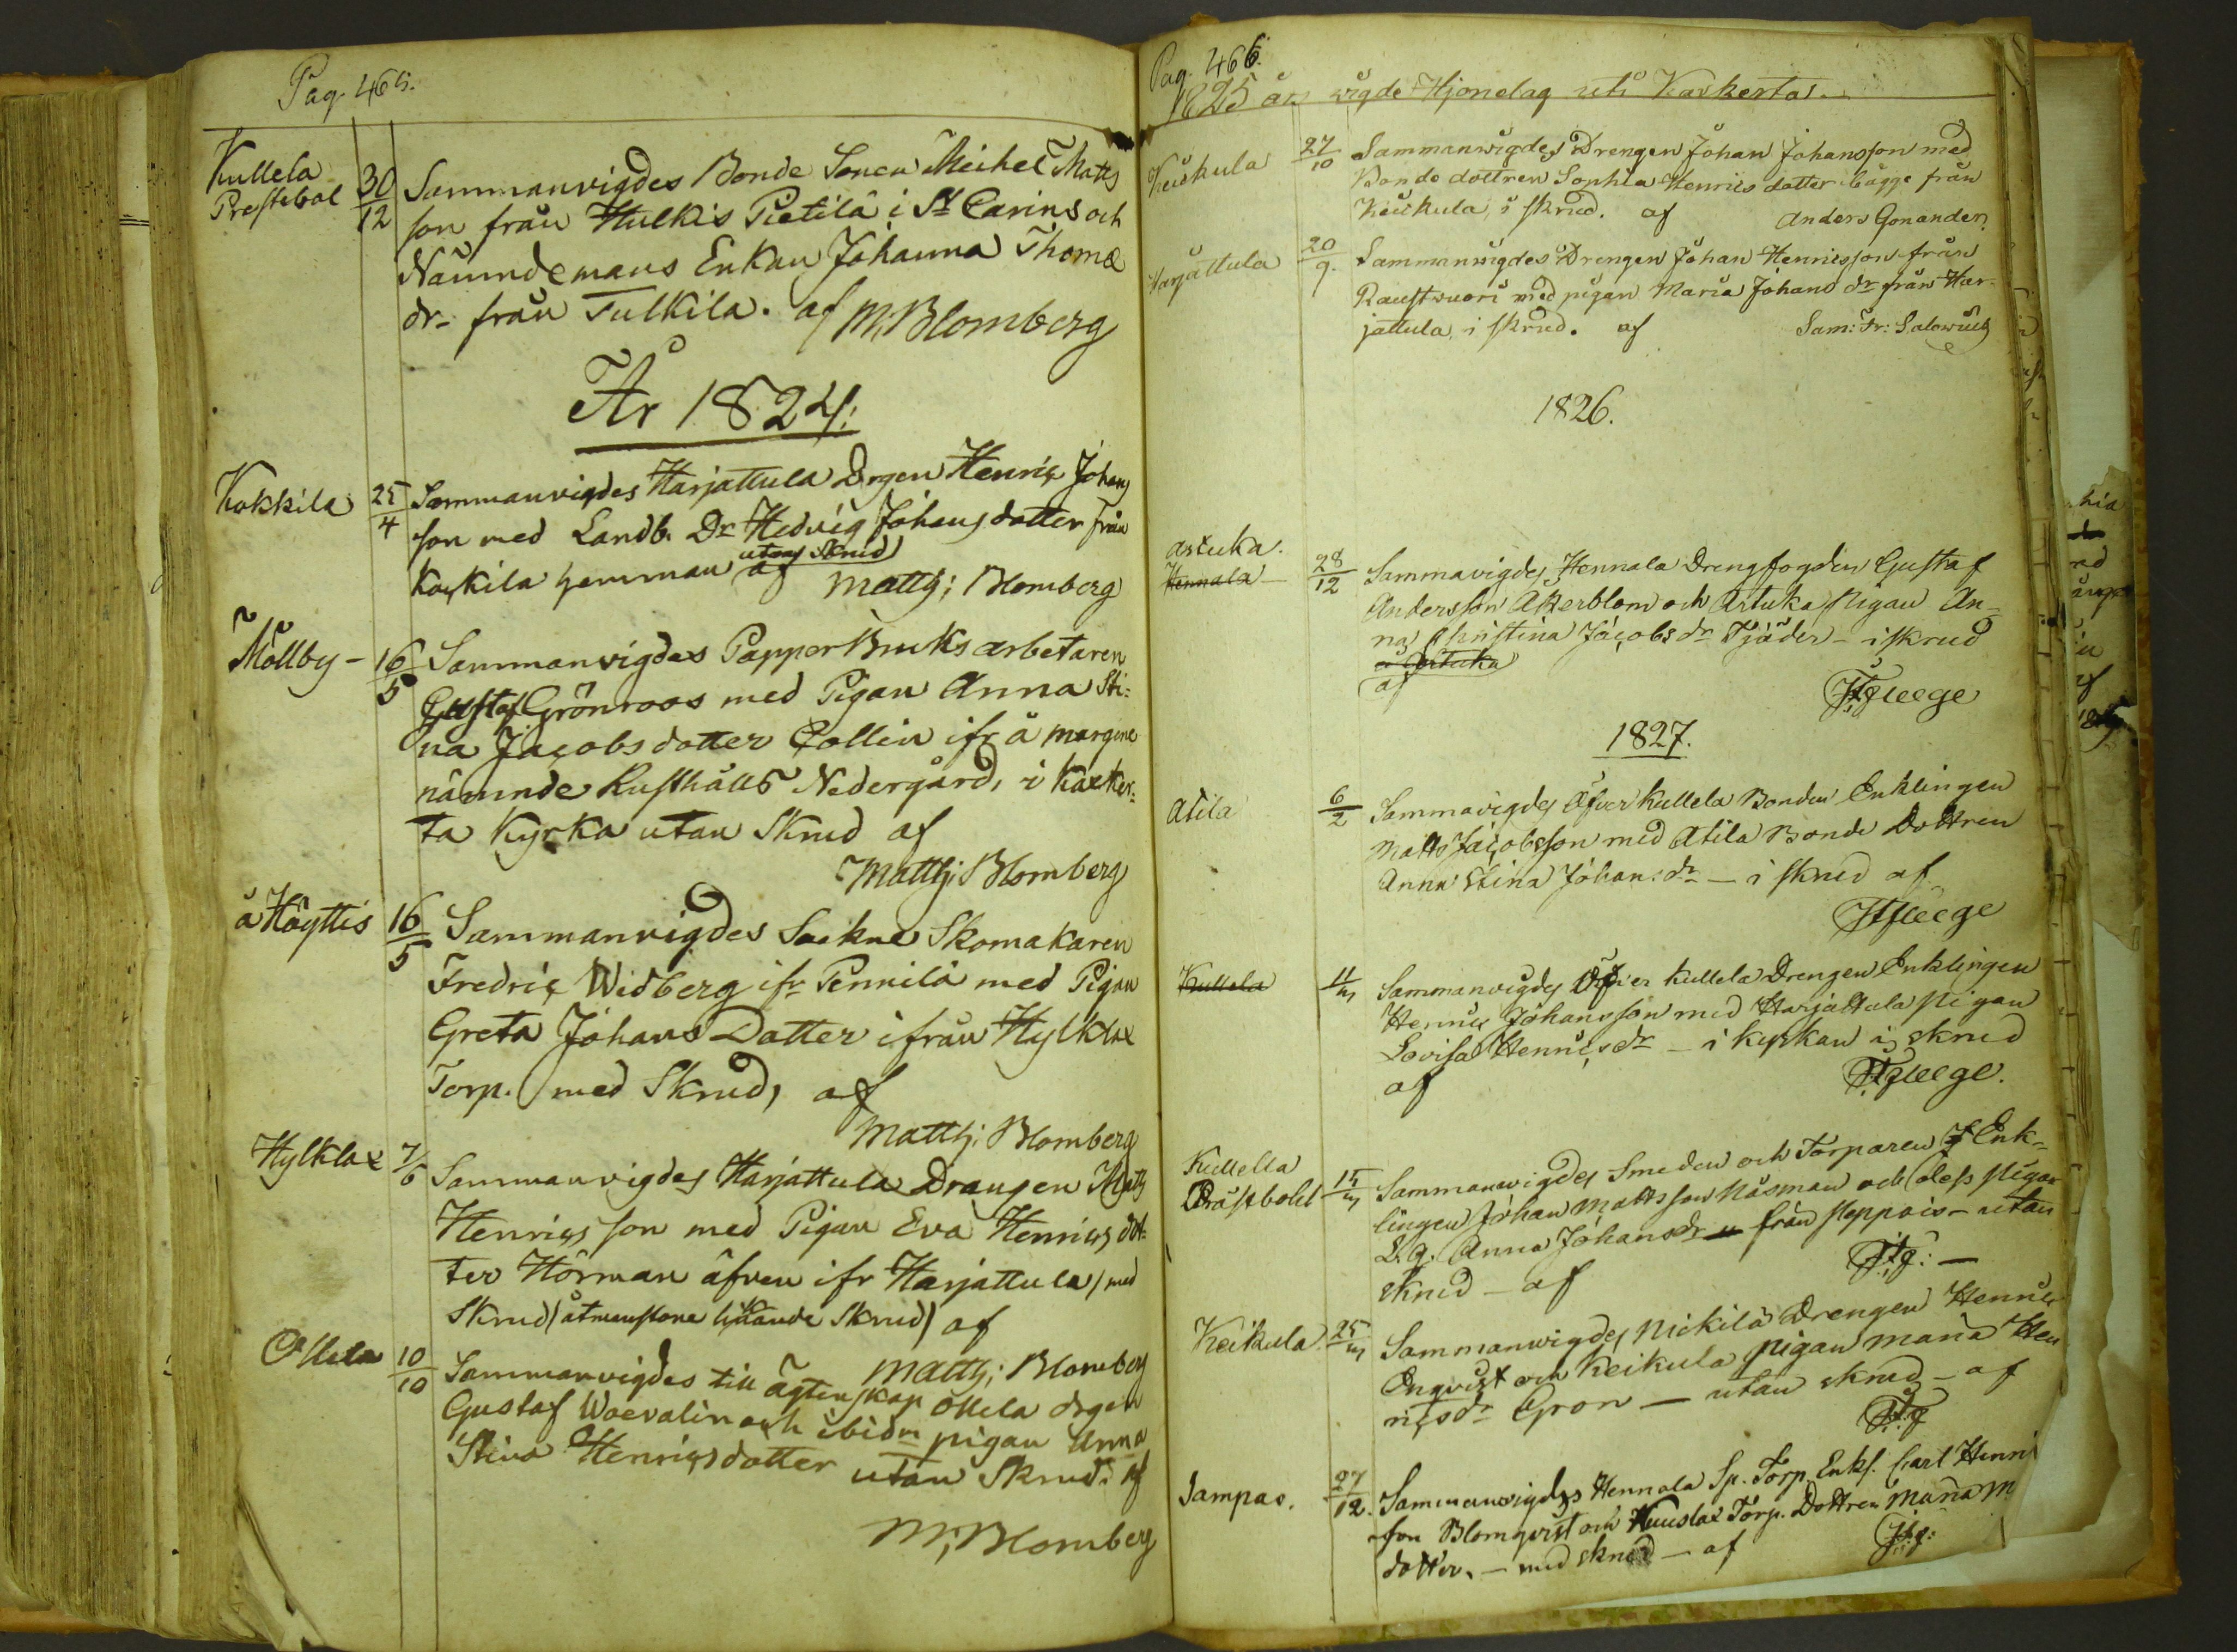 Pag. 465.
Kullela
Prestebol
30
12
Sammanvigdes Bonde Sonen Michel Matts
son från Hulkis Pietilä i St Carins och
Nämndemans Enkan Johanna Thomæ
dr. från Tulkila. af M. Blomberg
År 1824.
Kokkila
25
4
Sammanvigdes Harjattula Drgen Henric Johans
son med Landb. Dr Hedvig Johans dotter från
utan Skrud
Kockila hemman af Matth: Blomberg
Möllby -
16
5
Sammanvigdes Papper Bruks arbetaren
Gustaf Grönroos med Pigan Anna Sti-
na Jacobs dotter Collin ifr å margine
nämnde Rusthålls Nedergård, i Karker-
ta Kyrka utan Skrud af
Matth: Blomberg
å Höyttis
16
5
Sammanvigdes Sockne Skomakaren
Fredric Widberg ifr Pennilä med Pigan
Greta Johans Dotter ifrån Hylklax
Torp. med Skrud, af
Matth: Blomberg
Hylklax
7/6
Sammanvigdes Harjattula Drängen Matts
Henricsson med Pigan Eva Henrics dot-
ter Hörman äfven ifr Harjattula / med
Skrud / åtminstone liknande Skrud / af
Matth: Blomberg
Ollila
10
10
Sammanvigdes till ägtenskap Ollila drgen
Gustaf Woevalin och ibidm pigan Anna
Stina Henricsdotter utan Skrud. af
M; Blomberg
Pag. 466.
1825 års vigde Hjonelag uti Karkertas.
Keikula
27
10
Sammanwigdes Drengen Johan Johansson med
Bonde dottren Sophia Henrics dotter bägge från
Keikula, i skrud. af Anders Gonander.
Harjattula
20
9.
Sammanwigdes Drengen Johan Henricsson från
Raustvuori med pigan Maria Johans dr från Har-
jattula, i skrud. af Sam: Fr: Salovius
1826.
Artuka.
Hennala -
28
12
Sammavigdes Hennala Drengfogden Gustaf
Andersson Åkerblom och Artuka Pigan An-
na Christina Jacobs dr Tjäder - i skrud
å Artuka
af
1827.
Atila
6
2
Sammavigdes Öfver Kullela Bonden Enklingen
Matts Jacobsson med Atila Bonde Dottren
Anna Stina Johan: dr - i skrud af
Kullela
Sammanvigdes Öfver Kullela Drengen Enklingen
Henric Johansson med Harjattula Pigan
Lovisa Henricsdr - i kyrkan i skrud
af
Kullella
Prästbohl
Sammanvigdes Smeden och Torparen Enk-
lingen Johan Mattsson Näsman och dess Pigan
Anna Johansdr från Reppois - utan
skrud - af
Keikula
25
Sammanwigdes Nickilä Drengen Henric
Enqvist och Keikula Pigan Maria Hen
ricsdr Gron - utan skrud - af
Sampas.
27
12.
Sammanvigdes Hennala Sp. Torp. Enkl. Carl Henri
son Blomqvist och Kuuslax Torp. Dottren Maria M
dotter. - med skrud - af